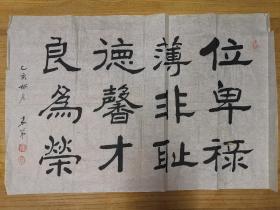 位卑禄
薄非耻
德馨才
良為榮